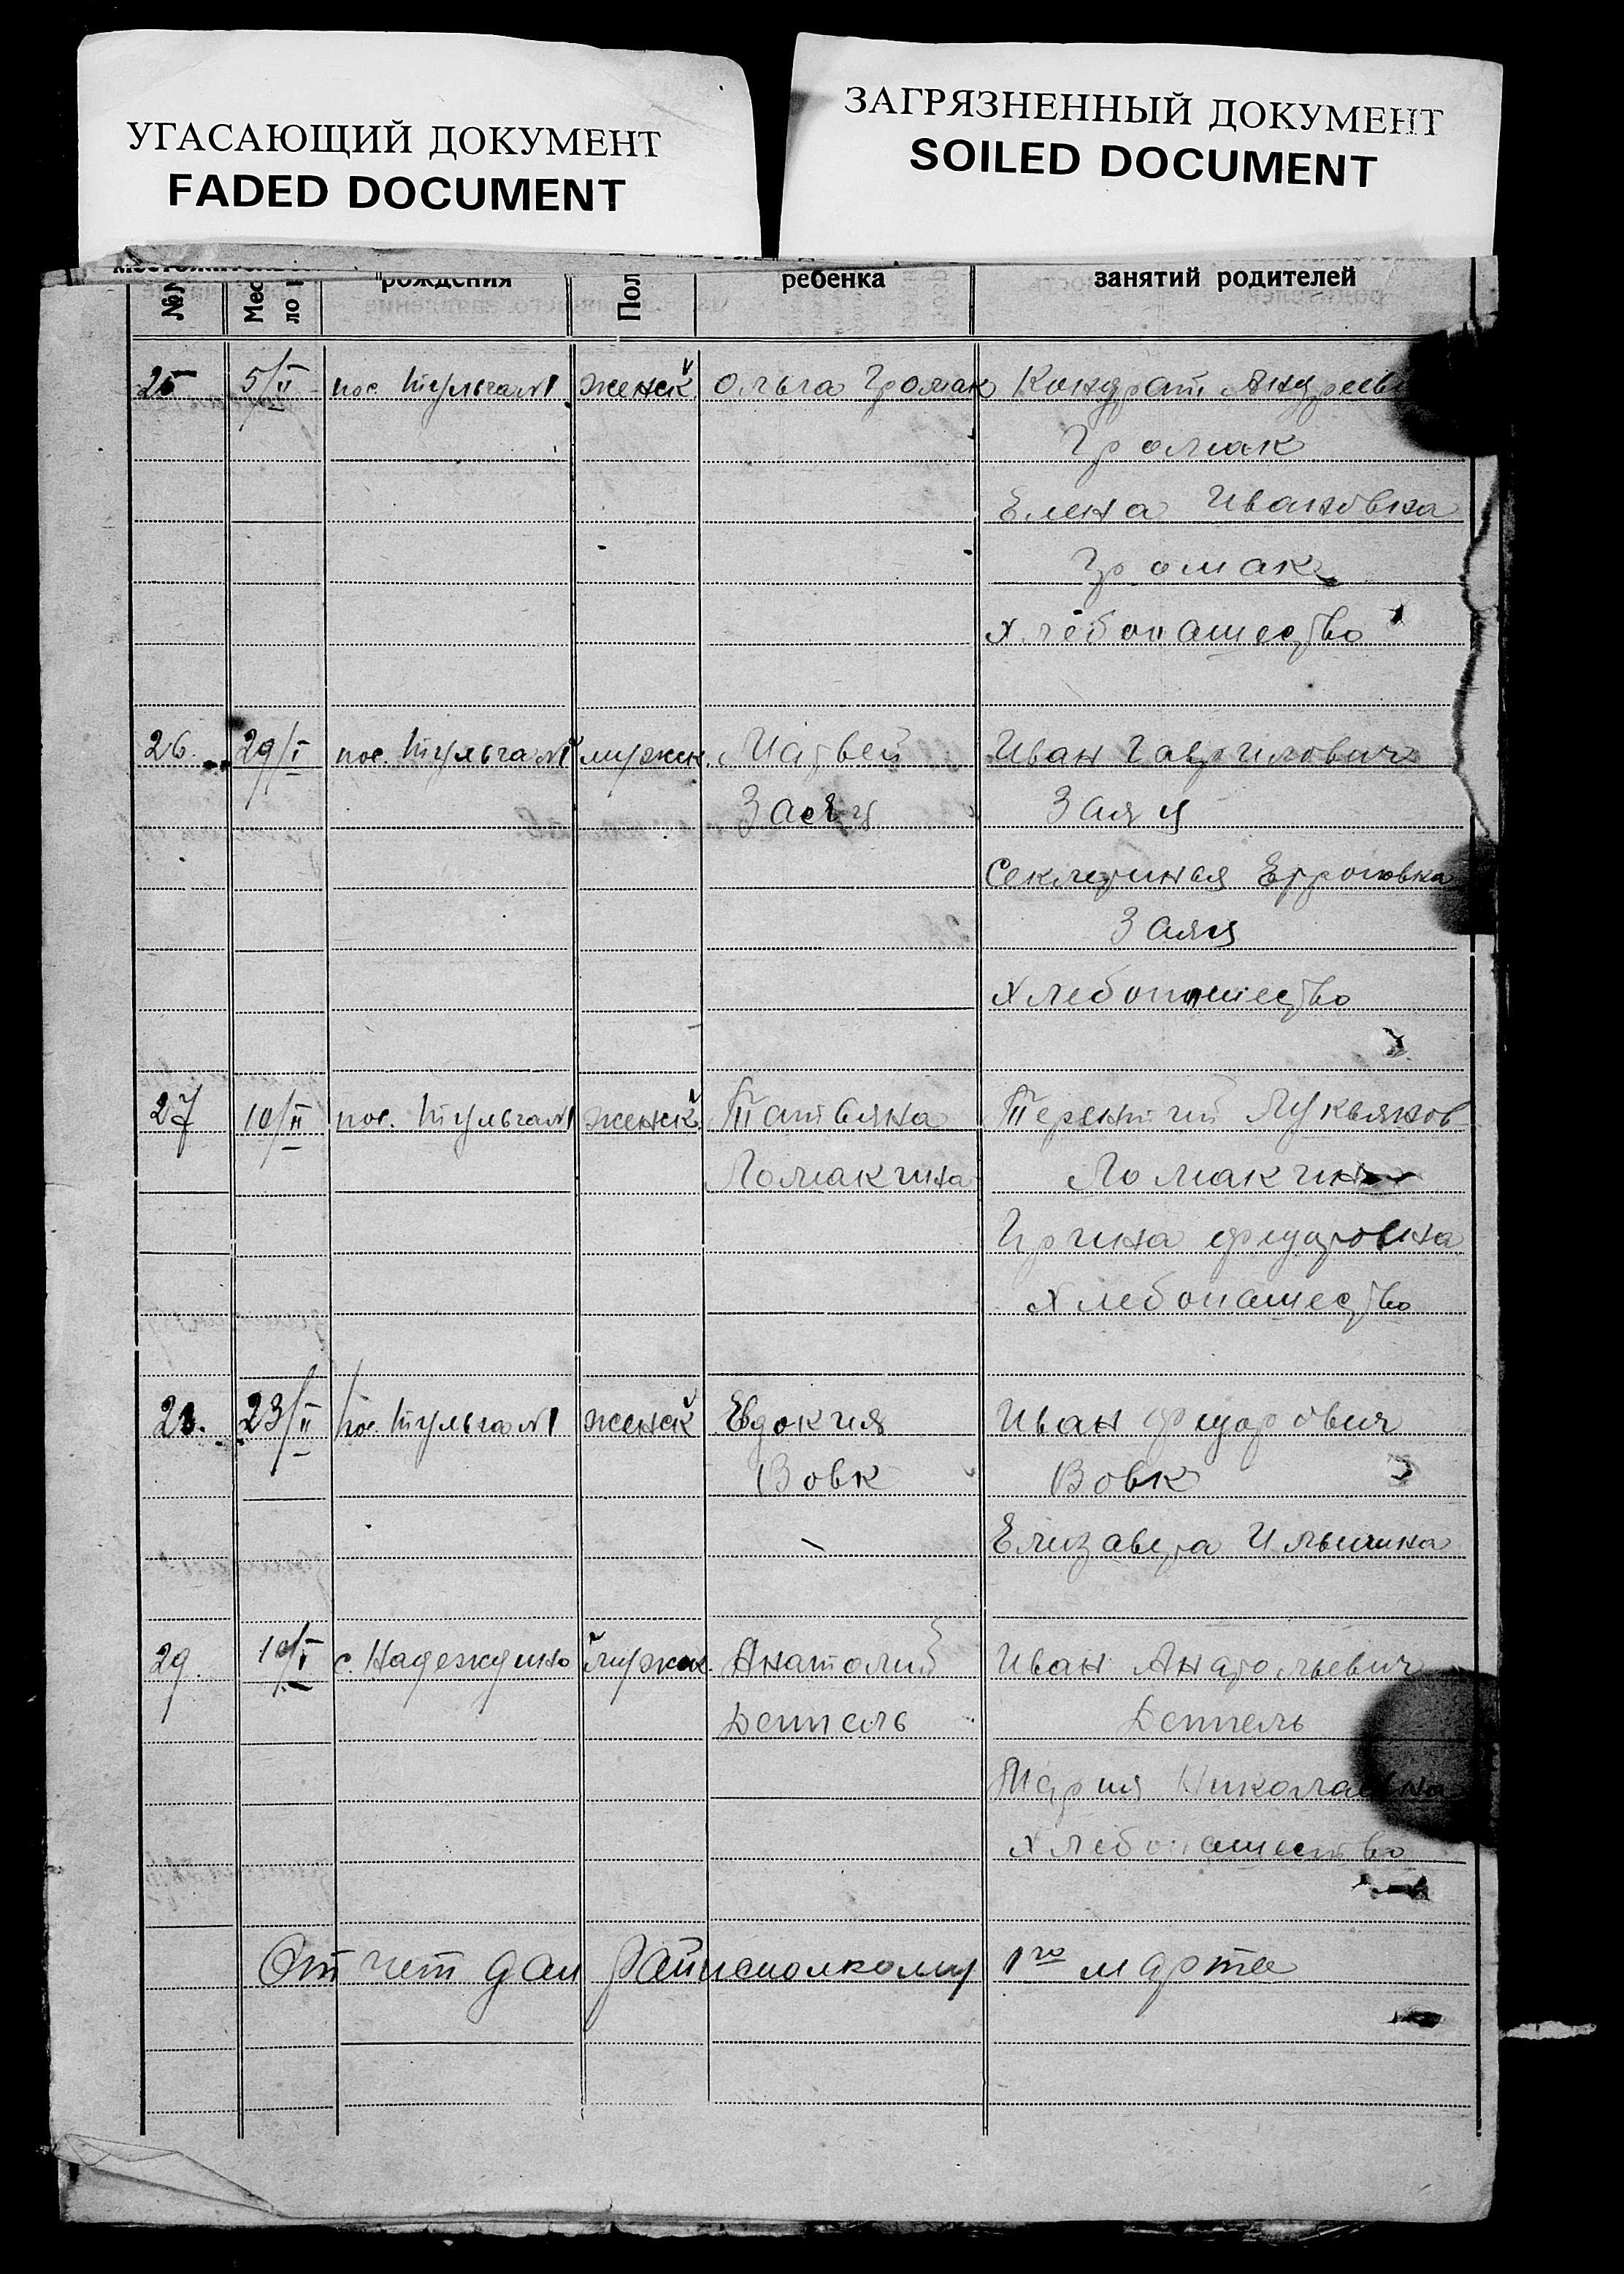 УГАСАЮЩИЙ ДОКУМЕНТ
FADED DOCUMENT
ЗАГРЯЗНЕННЫЙ ДОКУМЕНТ
SOILED DOCUMENT
рождения
Пол
ребенка
занятий родителей
25 5/II пос. Тульга №1 женск. Ольга Громак Кондрат Андрееви
Громак
Елена Ивановна
Громак
Хлебопашество
26. 29/I пос. Тульга №1 мужск. Матвей Иван Гаврилович
Заяц Заяц
Заяц
Хлебопашество
27 10/II пос. Тульга №1 женск. Татьяна Терентий Лукьянов
Ломакина Ломакин
Ирина Федоровна
Хлебопашество
23/II пос. Тульга №1 женск Евдокия Иван Федорович
Вовк Вовк
Елизавета Ильинишна
29. 10/I с. Надеждино мужск. Анатолий Иван Анатольевич
Деппель Деппель
Мария Николаевна
Хлебопашество
Отчет дан Райисполкому 1го марта